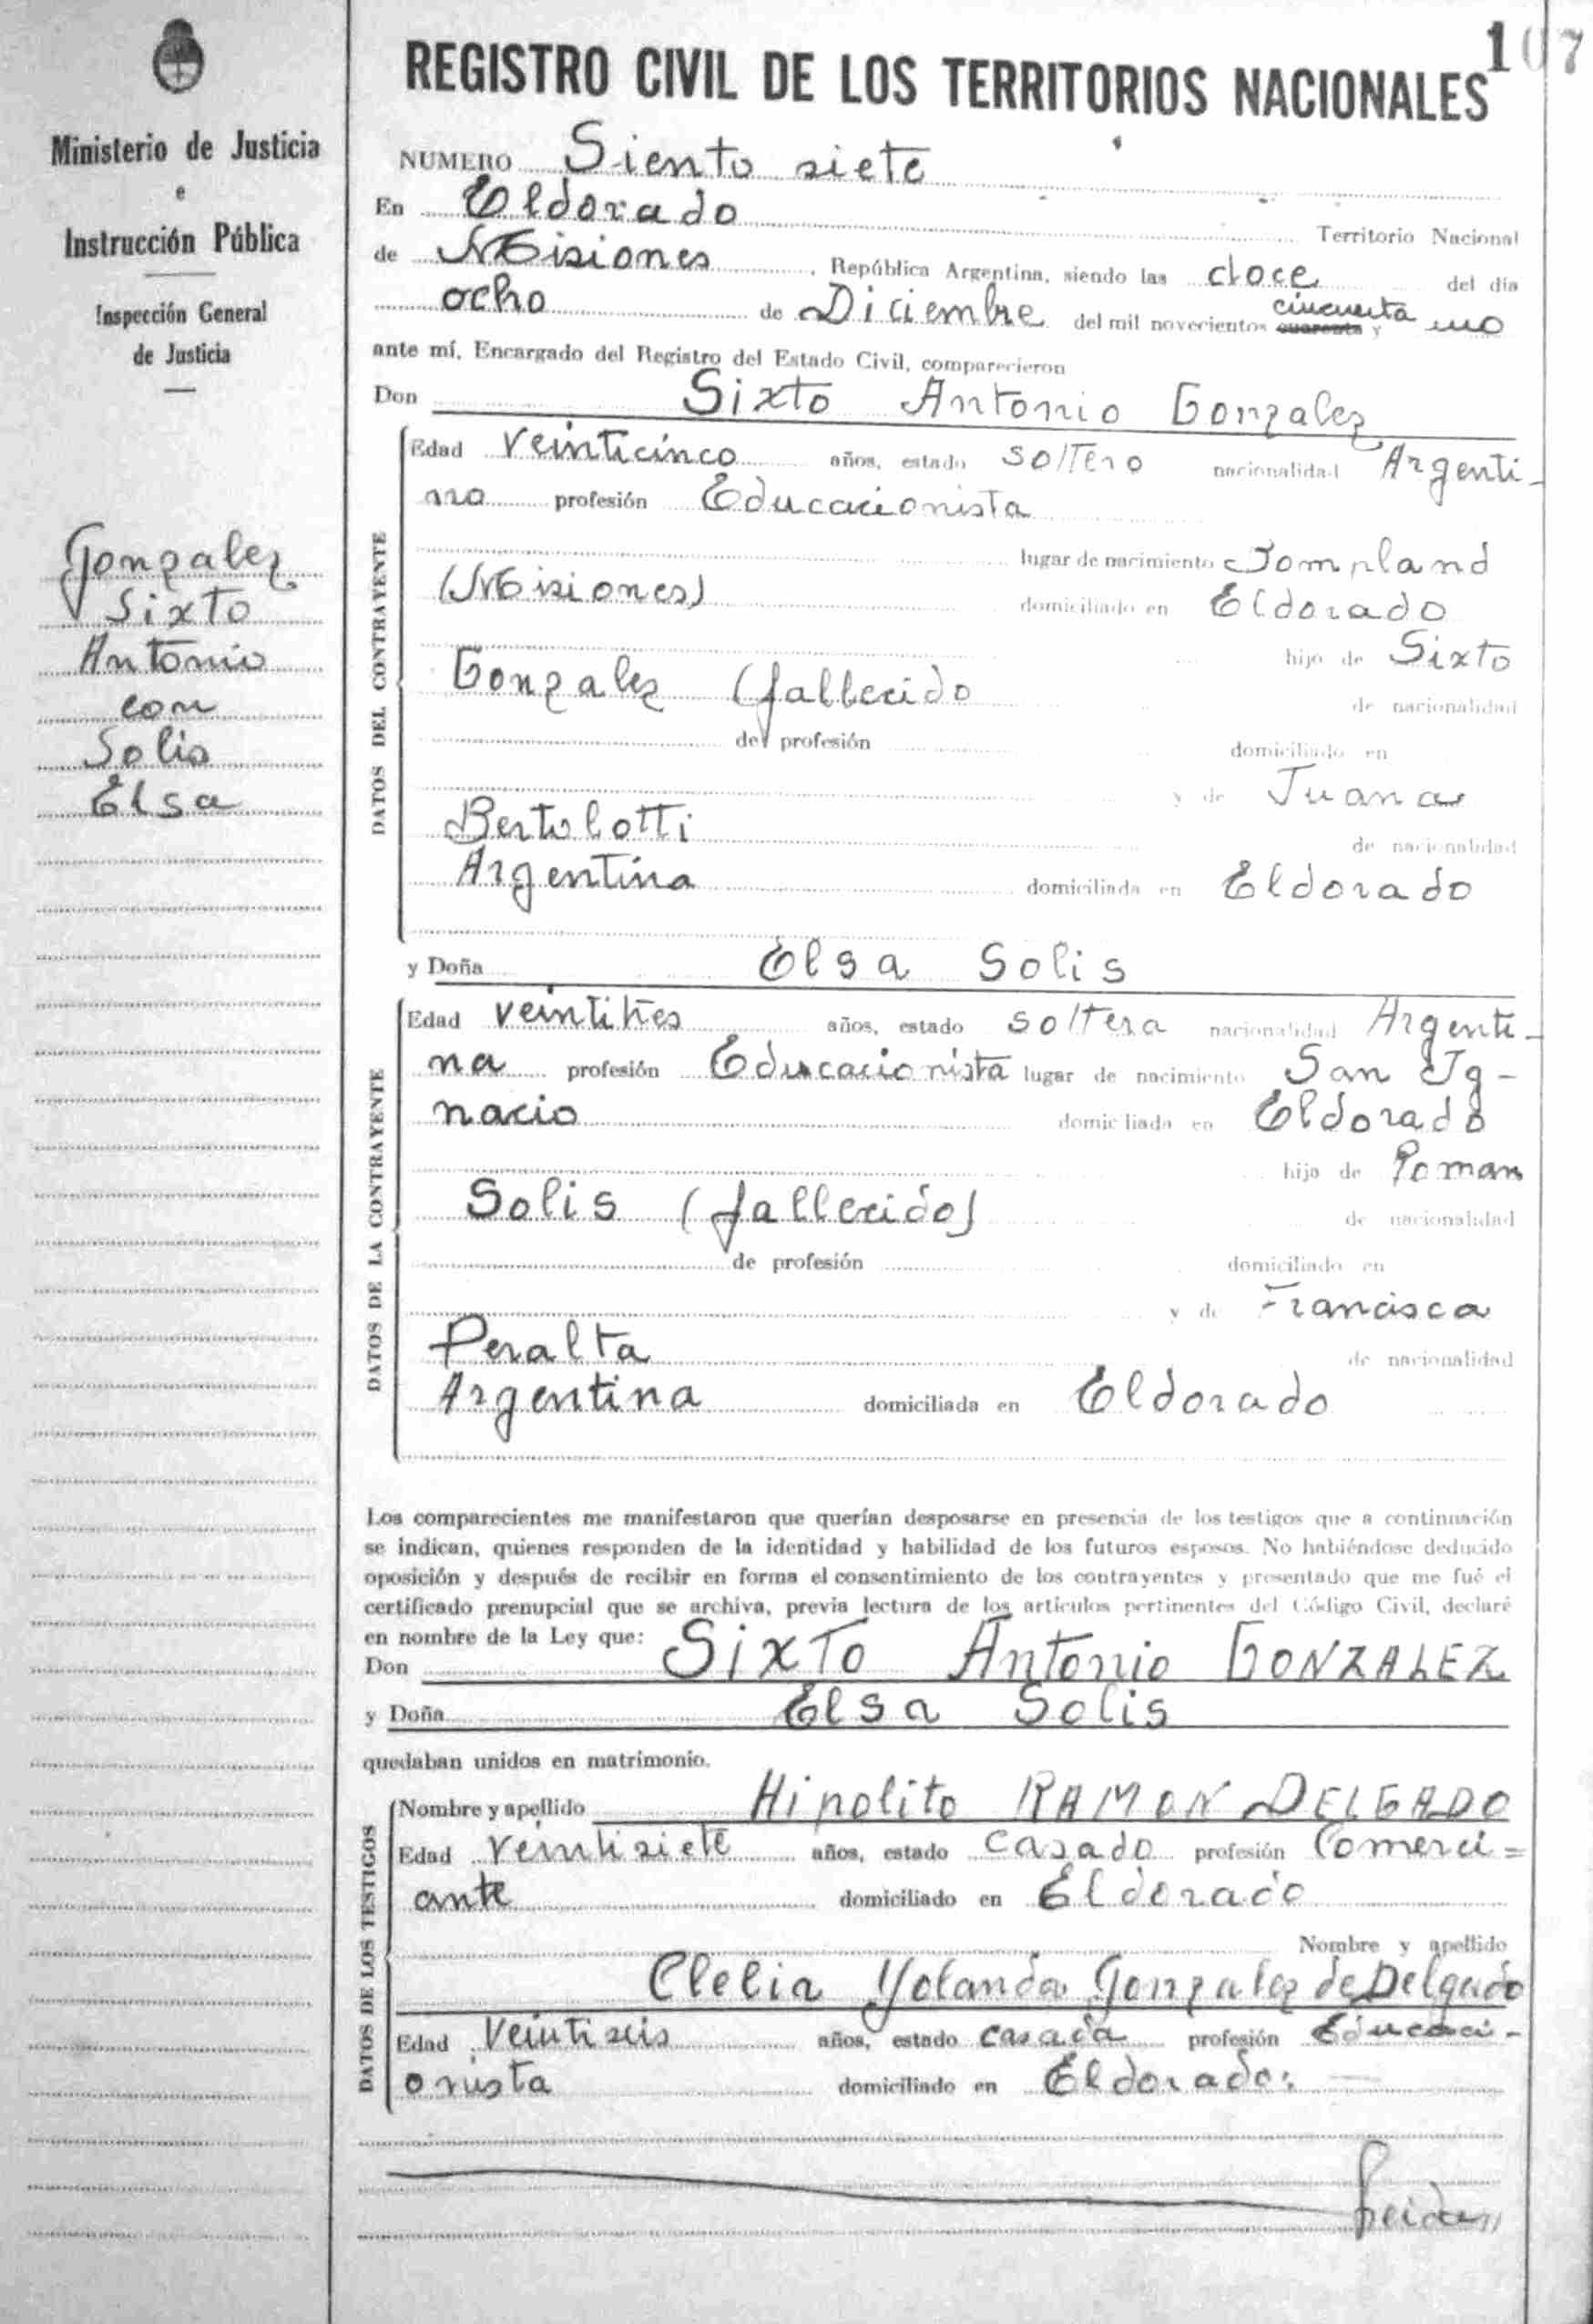 107
REGISTRO CIVIL DE LOS TERRITORIOS NACIONALES
Ministerio de Justicia
e
Instrucción Pública
Inspección General
de Justicia
Gonzalez
Sixto
Antonio
con
Solis
Elsa
NUMERO Siento siete
En Eldorado Territorio Nacional
de Misiones, República Argentina, siendo las doce del día
ocho de Diciembre del mil novecientos cuarenta y cincuenta uno
ante mí, Encargado del Registro del Estado Civil, comparecieron
Don Sixto Antonio Gonzalez
DATOS DEL CONTRAYENTE
Edad veinticinco años, estado soltero nacionalidad Argenti-
no profesión Educacionista
lugar de nacimiento
(Misiones) domiciliado en Eldorado
hijo de Sixto
Gonzalez (fallecido de nacionalidad
de profesión domiciliado en
y de Juana
Bertolotti de nacionalidad
Argentina domiciliada en Eldorado
y Doña Elsa Solis
DATOS DE LA CONTRAYENTE
Edad veintitres años, estado soltera nacionalidad Argenti-
na profesión Educacionista lugar de nacimiento San Ig-
nacio domiciliada en Eldorado
hija de Roman
Solis (fallecido) de nacionalidad
de profesión domiciliado en
y de Francisca
Peralta de nacionalidad
Argentina domiciliada en Eldorado
Los comparecientes me manifestaron que querían desposarse en presencia de los testigos que a continuación
se indican, quienes responden de la identidad y habilidad de los futuros esposos. No habiéndose deducido
oposición y después de recibir en forma el consentimiento de los contrayentes y presentado que me fué el
certificado prenupcial que se archiva, previa lectura de los artículos pertinentes del Código Civil, declaré
en nombre de la Ley que:
Don Sixto Antonio GONZALEZ
y Doña Elsa Solis
quedaban unidos en matrimonio.
DATOS DE LOS TESTIGOS
Nombre y apellido Hipolito RAMON DELGADO
Edad Veintisiete años, estado casado profesión Comerci=
ante domiciliado en Eldorado
Nombre y apellido
Clelia Yolanda Gonzalez de Delgado
Edad Veintiseis años, estado casada profesión Educaci-
onista domiciliado en Eldorado: